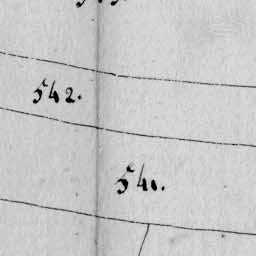 542.
541.